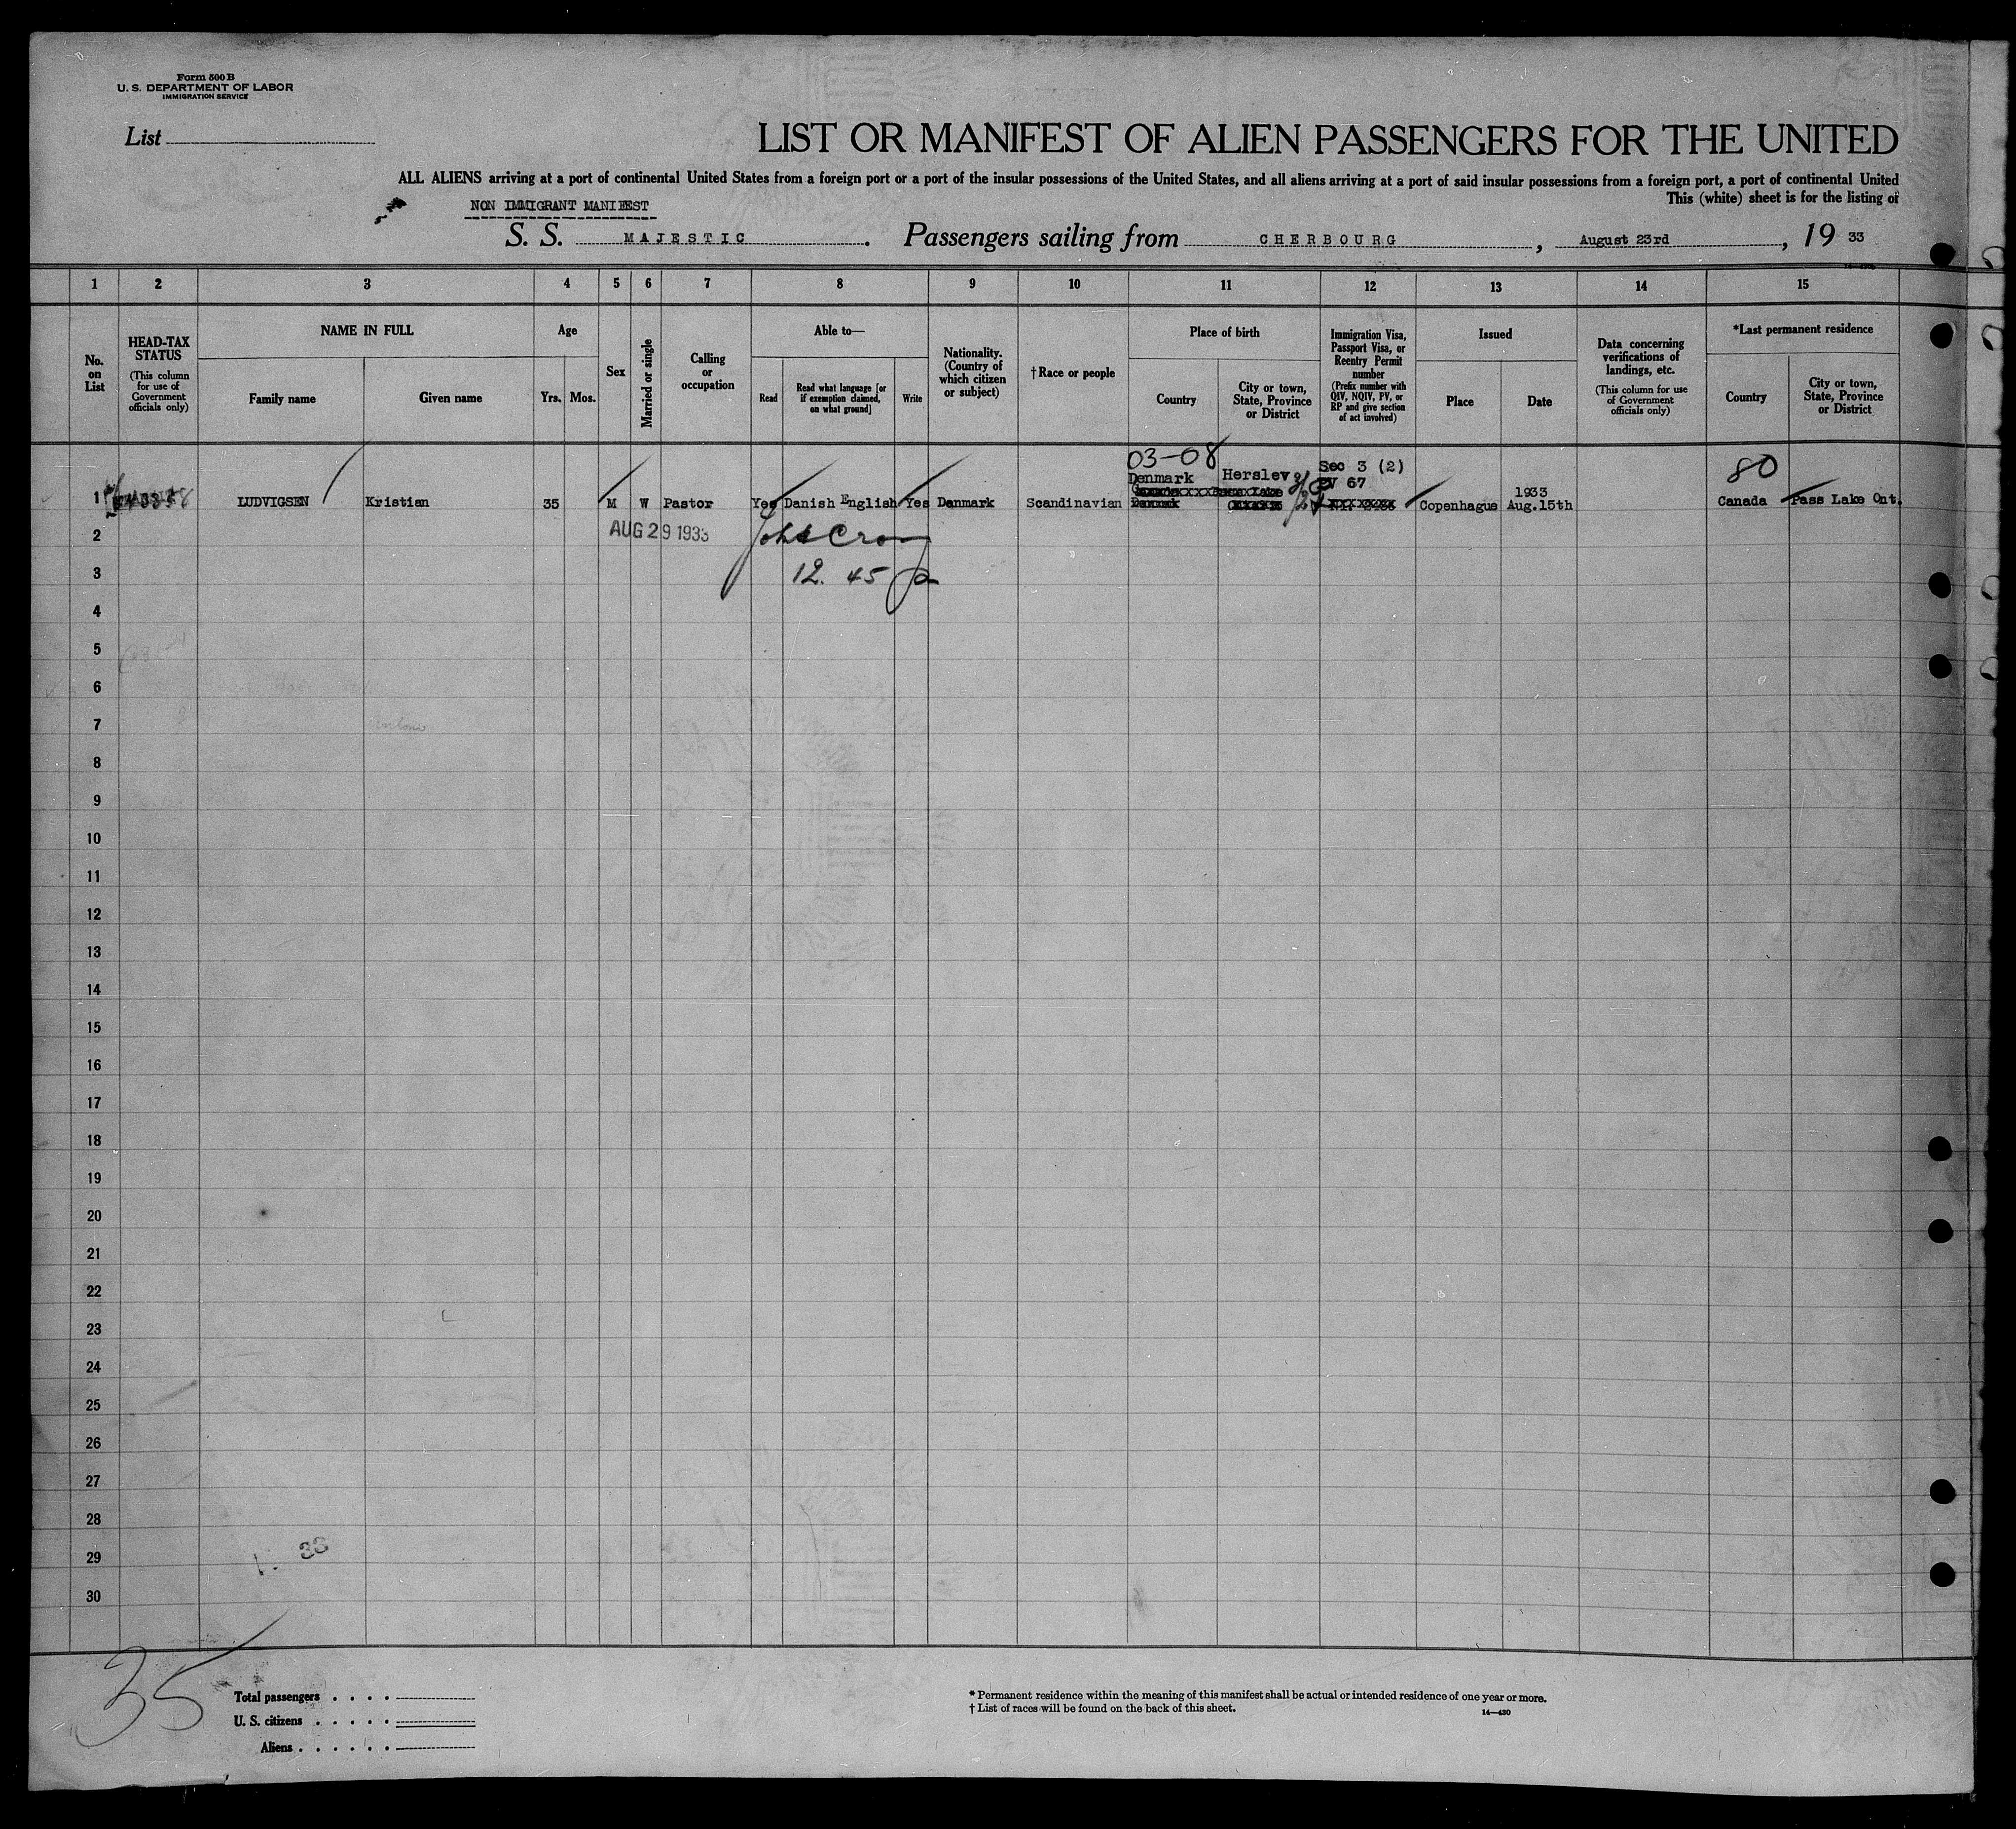 Form 500 B
U. S. DEPARTMENT OF LABOR
IMMIGRATION SERVICE
List
LIST OR MANIFEST OF ALIEN PASSENGERS FOR THE UNITED
ALL ALIENS arriving at a port of continental United States from a foreign port or a port of the insular possessions of the United States, and all aliens arriving at a port of said insular possessions from a foreign port, a port of continental United
This (white) sheet is for the listing of
NON IMMIGRANT MANIFEST
S. S. MAJESTIC. Passengers sailing from CHERBOURG, August 23rd, 19 33
1 2 3 4 5 6 7 8 9 10 11 12 13 14 15
No. on List
HEAD-TAX STATUS
(This column for use of Government officials only)
NAME IN FULL
Family name
Given name
Age
Yrs. Mos.
Sex
Married or single
Calling or occupation
Able to—
Read
Read what language [or if exemption claimed, on what ground]
Write
Nationality. (Country of which citizen or subject)
†Race or people
Place of birth
Country
City or town, State, Province or District
Immigration Visa, Passport Visa, or Reentry Permit number
(Prefix number with QIV, NQIV, PV, or RP and give section of act involved)
Issued
Place
Date
Data concerning verifications of landings, etc.
(This column for use of Government officials only)
*Last permanent residence
Country
City or town, State, Province or District
03-08
Denmark Herslev
Sec 3 (2)
PV 67
80
1933
1 LUDVIGSEN Kristian 35 M W Pastor Yes Danish English Yes Danmark Scandinavian Copenhague Aug.15th Canada Pass Lake Ont.
2 AUG 29 1933
3 12. 45
4
5
6
7
8
9
10
11
12
13
14
15
16
17
18
19
20
21
22
23
24
25
26
27
28
29
33
30
35
Total passengers . . . .
U. S. citizens . . . . .
Aliens . . . . . .
* Permanent residence within the meaning of this manifest shall be actual or intended residence of one year or more.
† List of races will be found on the back of this sheet.
14—430